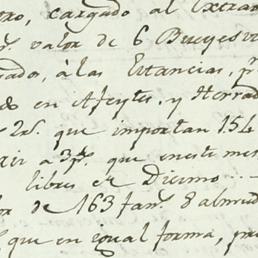 tro, cargado al Extra
pr. valor de 6 Bueyes v
ados, â las Estancias, pr.
do en Afeytes, y Herrad
2rs. que importan 154
a 3ps. que en este mes
libres de Diezmo
de 163 fans. 8 almud
que en igual forma, pr